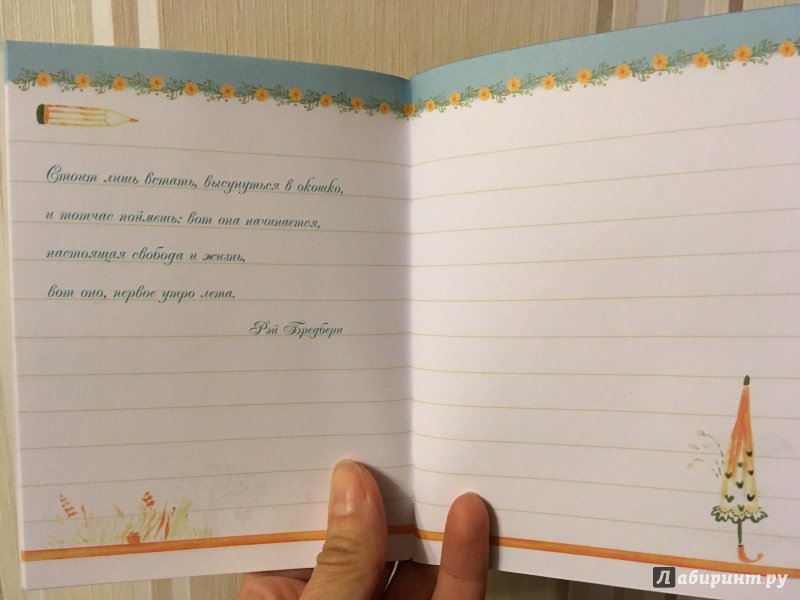 Стоит лишь встать, высунуться в окошко,
и тотчас поймешь: вот она начинается,
настоящая свобода и жизнь,
вот оно, первое утро лета.
Рэй Бредбери
Лабиринт.ру